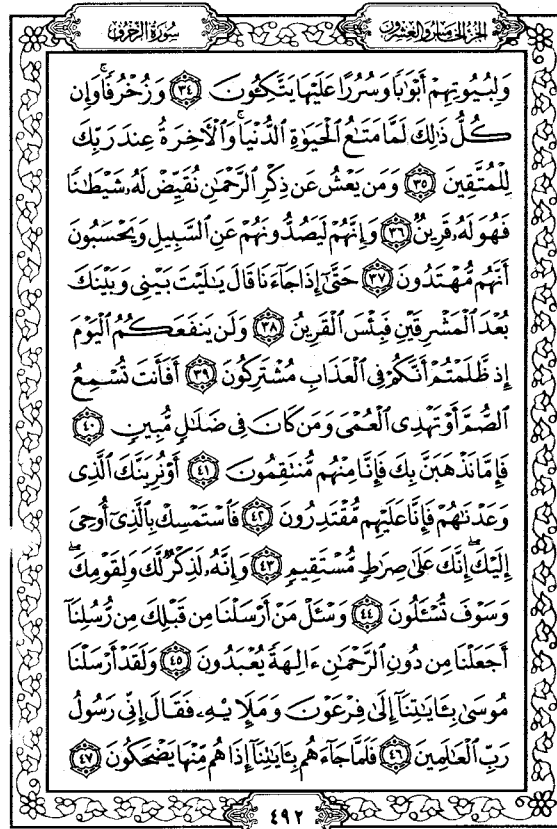 سُورَةُ الزُّخْرُفِ
الجُزْءُ الخَامِسُ وَالعِشْرُونَ
وَلِبُيُوتِهِمْ أَبْوَٰبًا وَسُرُرًا عَلَيْهَا يَتَّكِـُٔونَ ٣٤ وَزُخْرُفًا ۚ وَإِن
كُلُّ ذَٰلِكَ لَمَّا مَتَٰعُ ٱلْحَيَوٰةِ ٱلدُّنْيَا ۚ وَٱلْءَاخِرَةُ عِندَ رَبِّكَ
لِلْمُتَّقِينَ ٣٥ وَمَن يَعْشُ عَن ذِكْرِ ٱلرَّحْمَٰنِ نُقَيِّضْ لَهُۥ شَيْطَٰنًا
فَهُوَ لَهُۥ قَرِينٌ ٣٦ وَإِنَّهُمْ لَيَصُدُّونَهُمْ عَنِ ٱلسَّبِيلِ وَيَحْسَبُونَ
أَنَّهُم مُّهْتَدُونَ ٣٧ حَتَّىٰٓ إِذَا جَآءَنَا قَالَ يَٰلَيْتَ بَيْنِى وَبَيْنَكَ
بُعْدَ ٱلْمَشْرِقَيْنِ فَبِئْسَ ٱلْقَرِينُ ٣٨ وَلَن يَنفَعَكُمُ ٱلْيَوْمَ
إِذ ظَّلَمْتُمْ أَنَّكُمْ فِى ٱلْعَذَابِ مُشْتَرِكُونَ ٣٩ أَفَأَنتَ تُسْمِعُ
ٱلصُّمَّ أَوْ تَهْدِى ٱلْعُمْىَ وَمَن كَانَ فِى ضَلَٰلٍ مُّبِينٍ ٤٠
فَإِمَّا نَذْهَبَنَّ بِكَ فَإِنَّا مِنْهُم مُّنتَقِمُونَ ٤١ أَوْ نُرِيَنَّكَ ٱلَّذِى
وَعَدْنَٰهُمْ فَإِنَّا عَلَيْهِم مُّقْتَدِرُونَ ٤٢ فَٱسْتَمْسِكْ بِٱلَّذِىٓ أُوحِىَ
إِلَيْكَ ۖ إِنَّكَ عَلَىٰ صِرَٰطٍ مُّسْتَقِيمٍ ٤٣ وَإِنَّهُۥ لَذِكْرٌ لَّكَ وَلِقَوْمِكَ ۖ
وَسَوْفَ تُسْـَٔلُونَ ٤٤ وَسْـَٔلْ مَنْ أَرْسَلْنَا مِن قَبْلِكَ مِن رُّسُلِنَآ
أَجَعَلْنَا مِن دُونِ ٱلرَّحْمَٰنِ ءَالِهَةً يُعْبَدُونَ ٤٥ وَلَقَدْ أَرْسَلْنَا
مُوسَىٰ بِـَٔايَٰتِنَآ إِلَىٰ فِرْعَوْنَ وَمَلَإِيْهِۦ فَقَالَ إِنِّى رَسُولُ
رَبِّ ٱلْعَٰلَمِينَ ٤٦ فَلَمَّا جَآءَهُم بِـَٔايَٰتِنَآ إِذَا هُم مِّنْهَا يَضْحَكُونَ ٤٧
٤٩٢